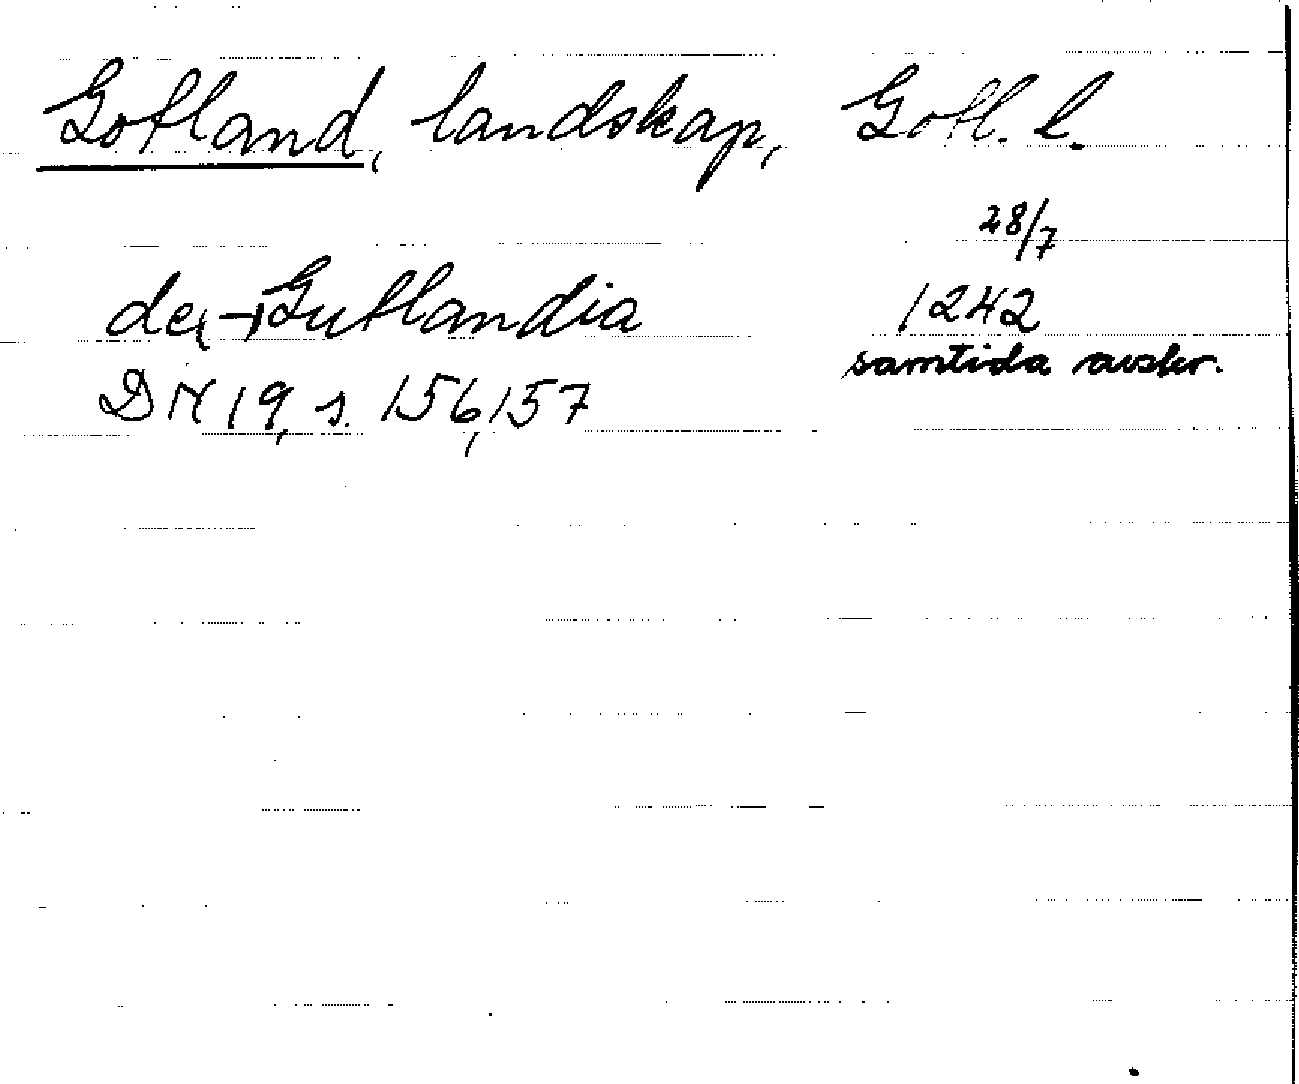 Gotland, landskap, Gotl. l.
28/7
de Gutlandia 1242
samtida avskr.
DN 19, s. 156, 157